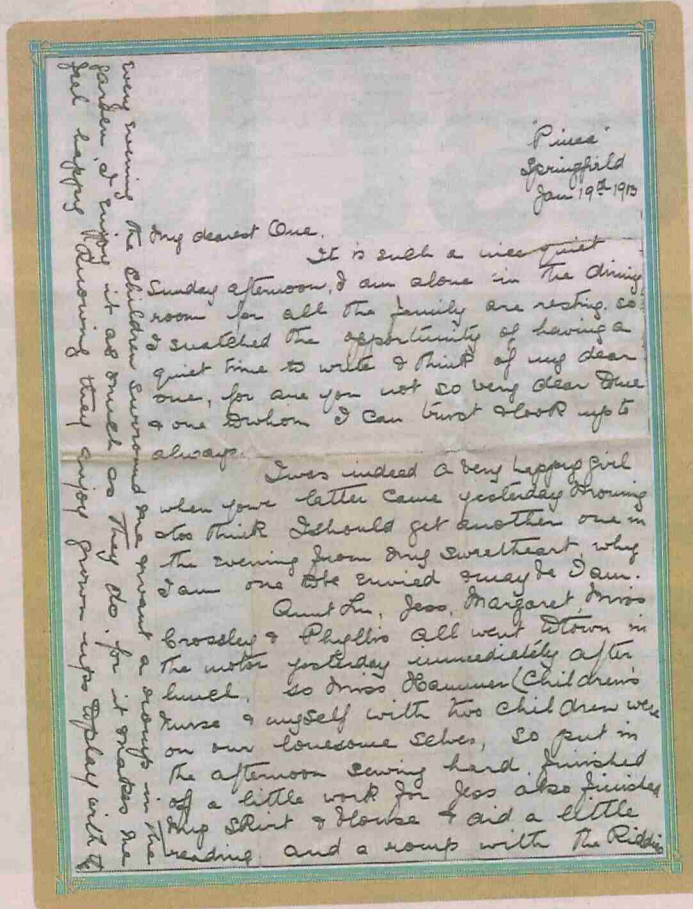 "Pinea"
Springfield
Jan 19th 1913
My dearest One.
It is such a nice quiet
Sunday afternoon, I am alone in the dining
room for all the family are resting. so
I snatched the opportunity of having a
quiet time to write & think of my dear
one, for are you not so very dear One
& one whom I can trust & look up to
always.
I was indeed a very happy girl
when your letter came yesterday morning
& to think I should get another one in
the evening from my sweetheart, why
I am one to be envied & maybe I am.
Aunt Lu, Jess, Margaret, Miss
Crossley & Phyllis all went to town in
the motor yesterday immediately after
lunch, so Miss Hammer (Children's
nurse & myself with two children were
on our lonesome selves, so put in
the afternoon sewing hard finished
off a little work for Jess also finished
my skirt & blouse & did a little
reading and a romp with the Kiddies
every evening the children surround me & want a romp in the
garden, I enjoy it as much as they do, for it makes me
feel happy knowing they enjoy grown ups to play with to